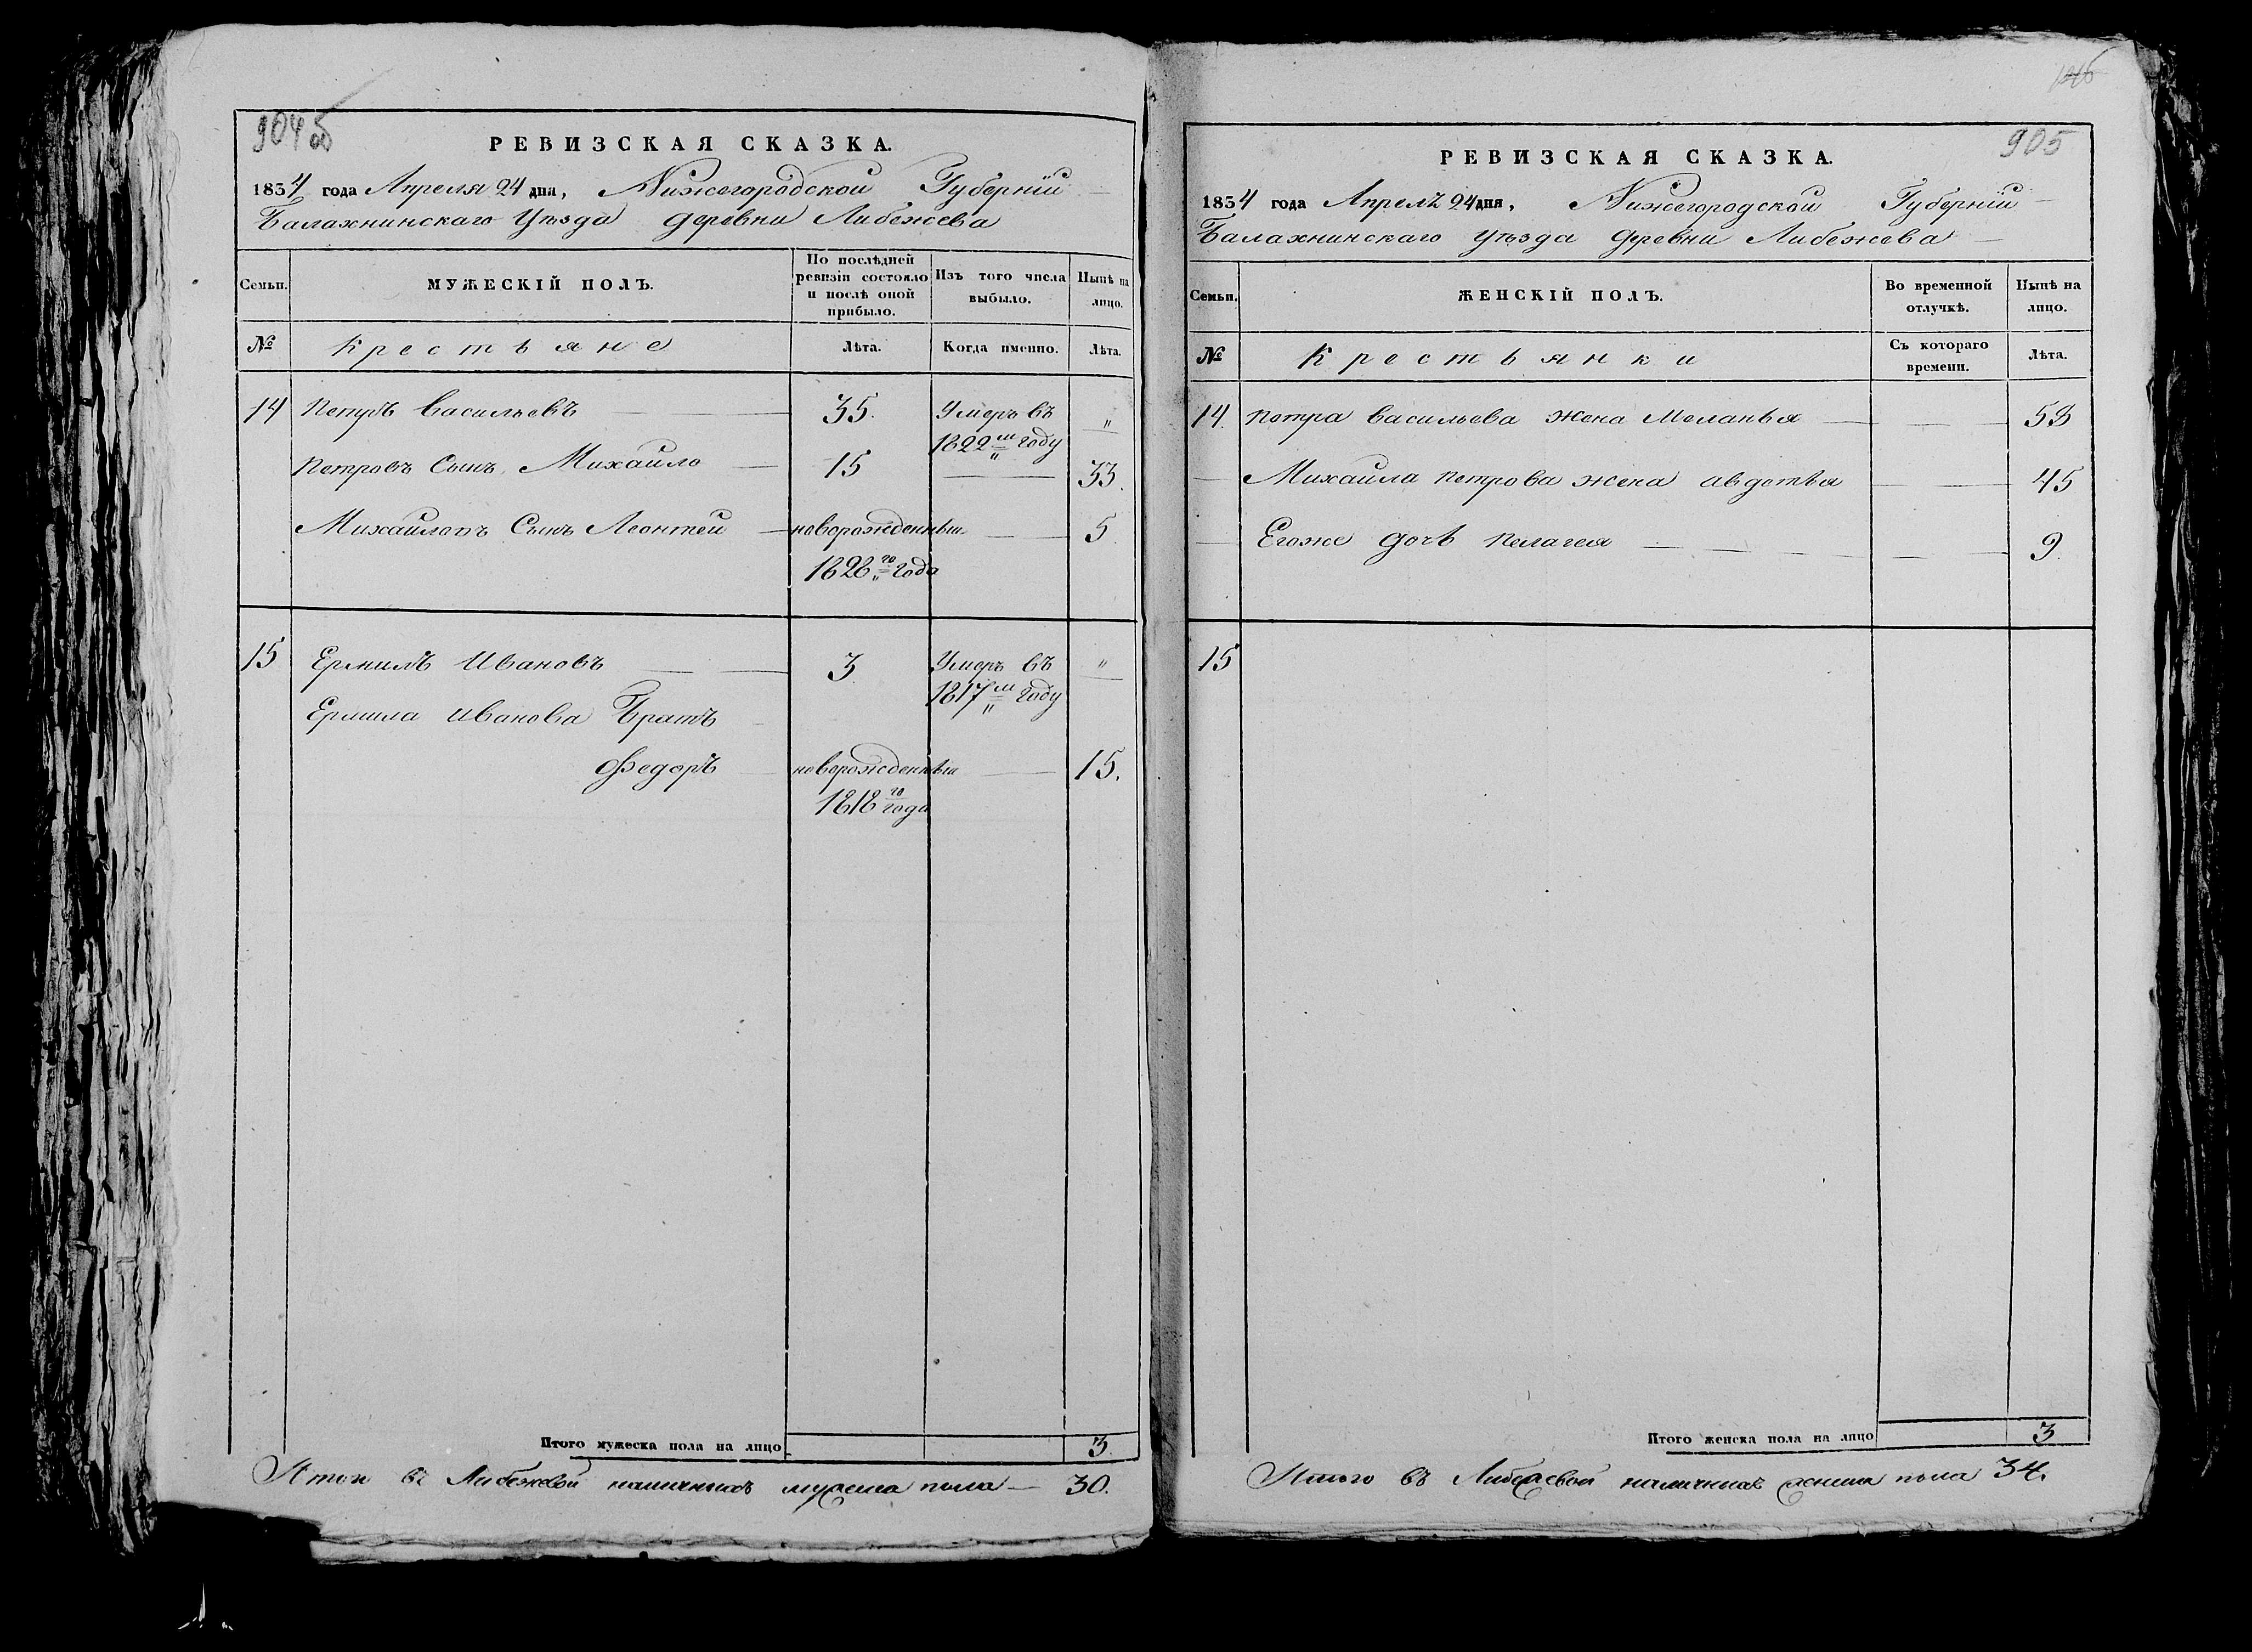 904 об
РЕВИЗСКАЯ СКАЗКА.
1834 года Апреля 24 дня, Нижегородской Губернїи
Балахнинскаго Уѣзда деревни Либежева
Семьи. МУЖЕСКІЙ ПОЛЪ. По послѣдней ревизіи состояло и послѣ оной прибыло. Изъ того числа выбыло. Нынѣ на лицо.
№ Крестьяне Лѣта. Когда именно. Лѣта.
14 Петръ Васильевъ 35. Умеръ въ 1822м году "
Петровъ Сынъ Михайло 15 33.
Михайловъ Сынъ Леонтей новорожденный 1828го года 5
15 Ермилъ Ивановъ 3 Умеръ въ 1817м году "
Ермила Иванова Братъ
Федоръ новорожденный 1818го года 15.
Итого мужеска пола на лицо 3.
Итого въ Либежевой наличныхъ мужеска пола 30.
905
РЕВИЗСКАЯ СКАЗКА.
1834 года Апрелѣ 24 дня, Нижегородской Губернїи
Балахнинскаго Уѣзда деревни Либежева
Семьи. ЖЕНСКІЙ ПОЛЪ. Во временной отлучкѣ. Нынѣ на лицо.
№ Крестьянки Съ котораго времени. Лѣта.
14. Петра Васильева жена Меланья 58
Михайла Петрова жена авдотья 45
Егоже дочь Пелагея 9.
15
Итого женска пола на лицо 3
Итого въ Либежевой наличныхъ женска пола 34.